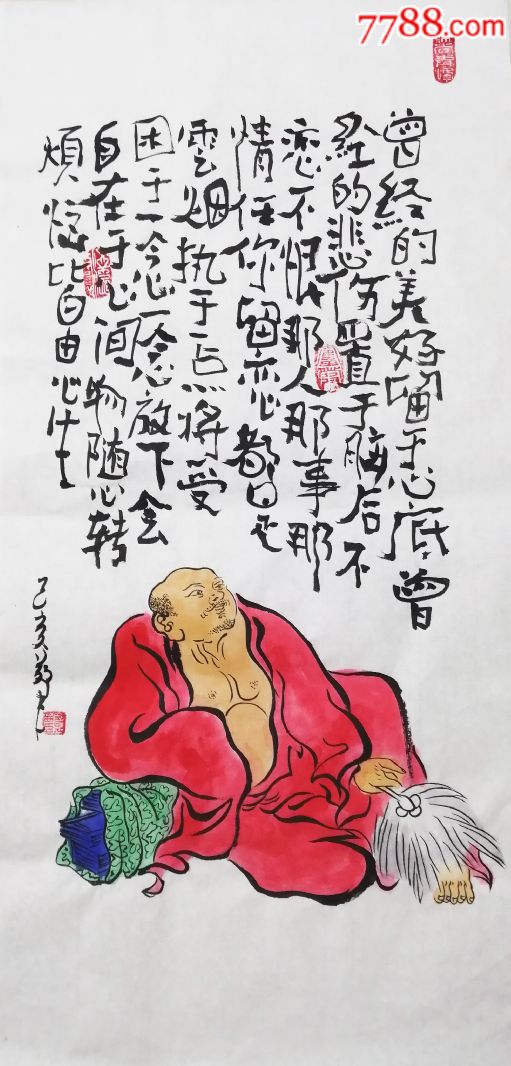 7788.com
曾经的美好留于心底曾
经的悲伤置于脑后不
恋不恨那人那事那
情任你留恋都已是
雲烟执于一点将受
困于一念一念放下会
自在于心间物随心转
烦恼皆由心生
己亥